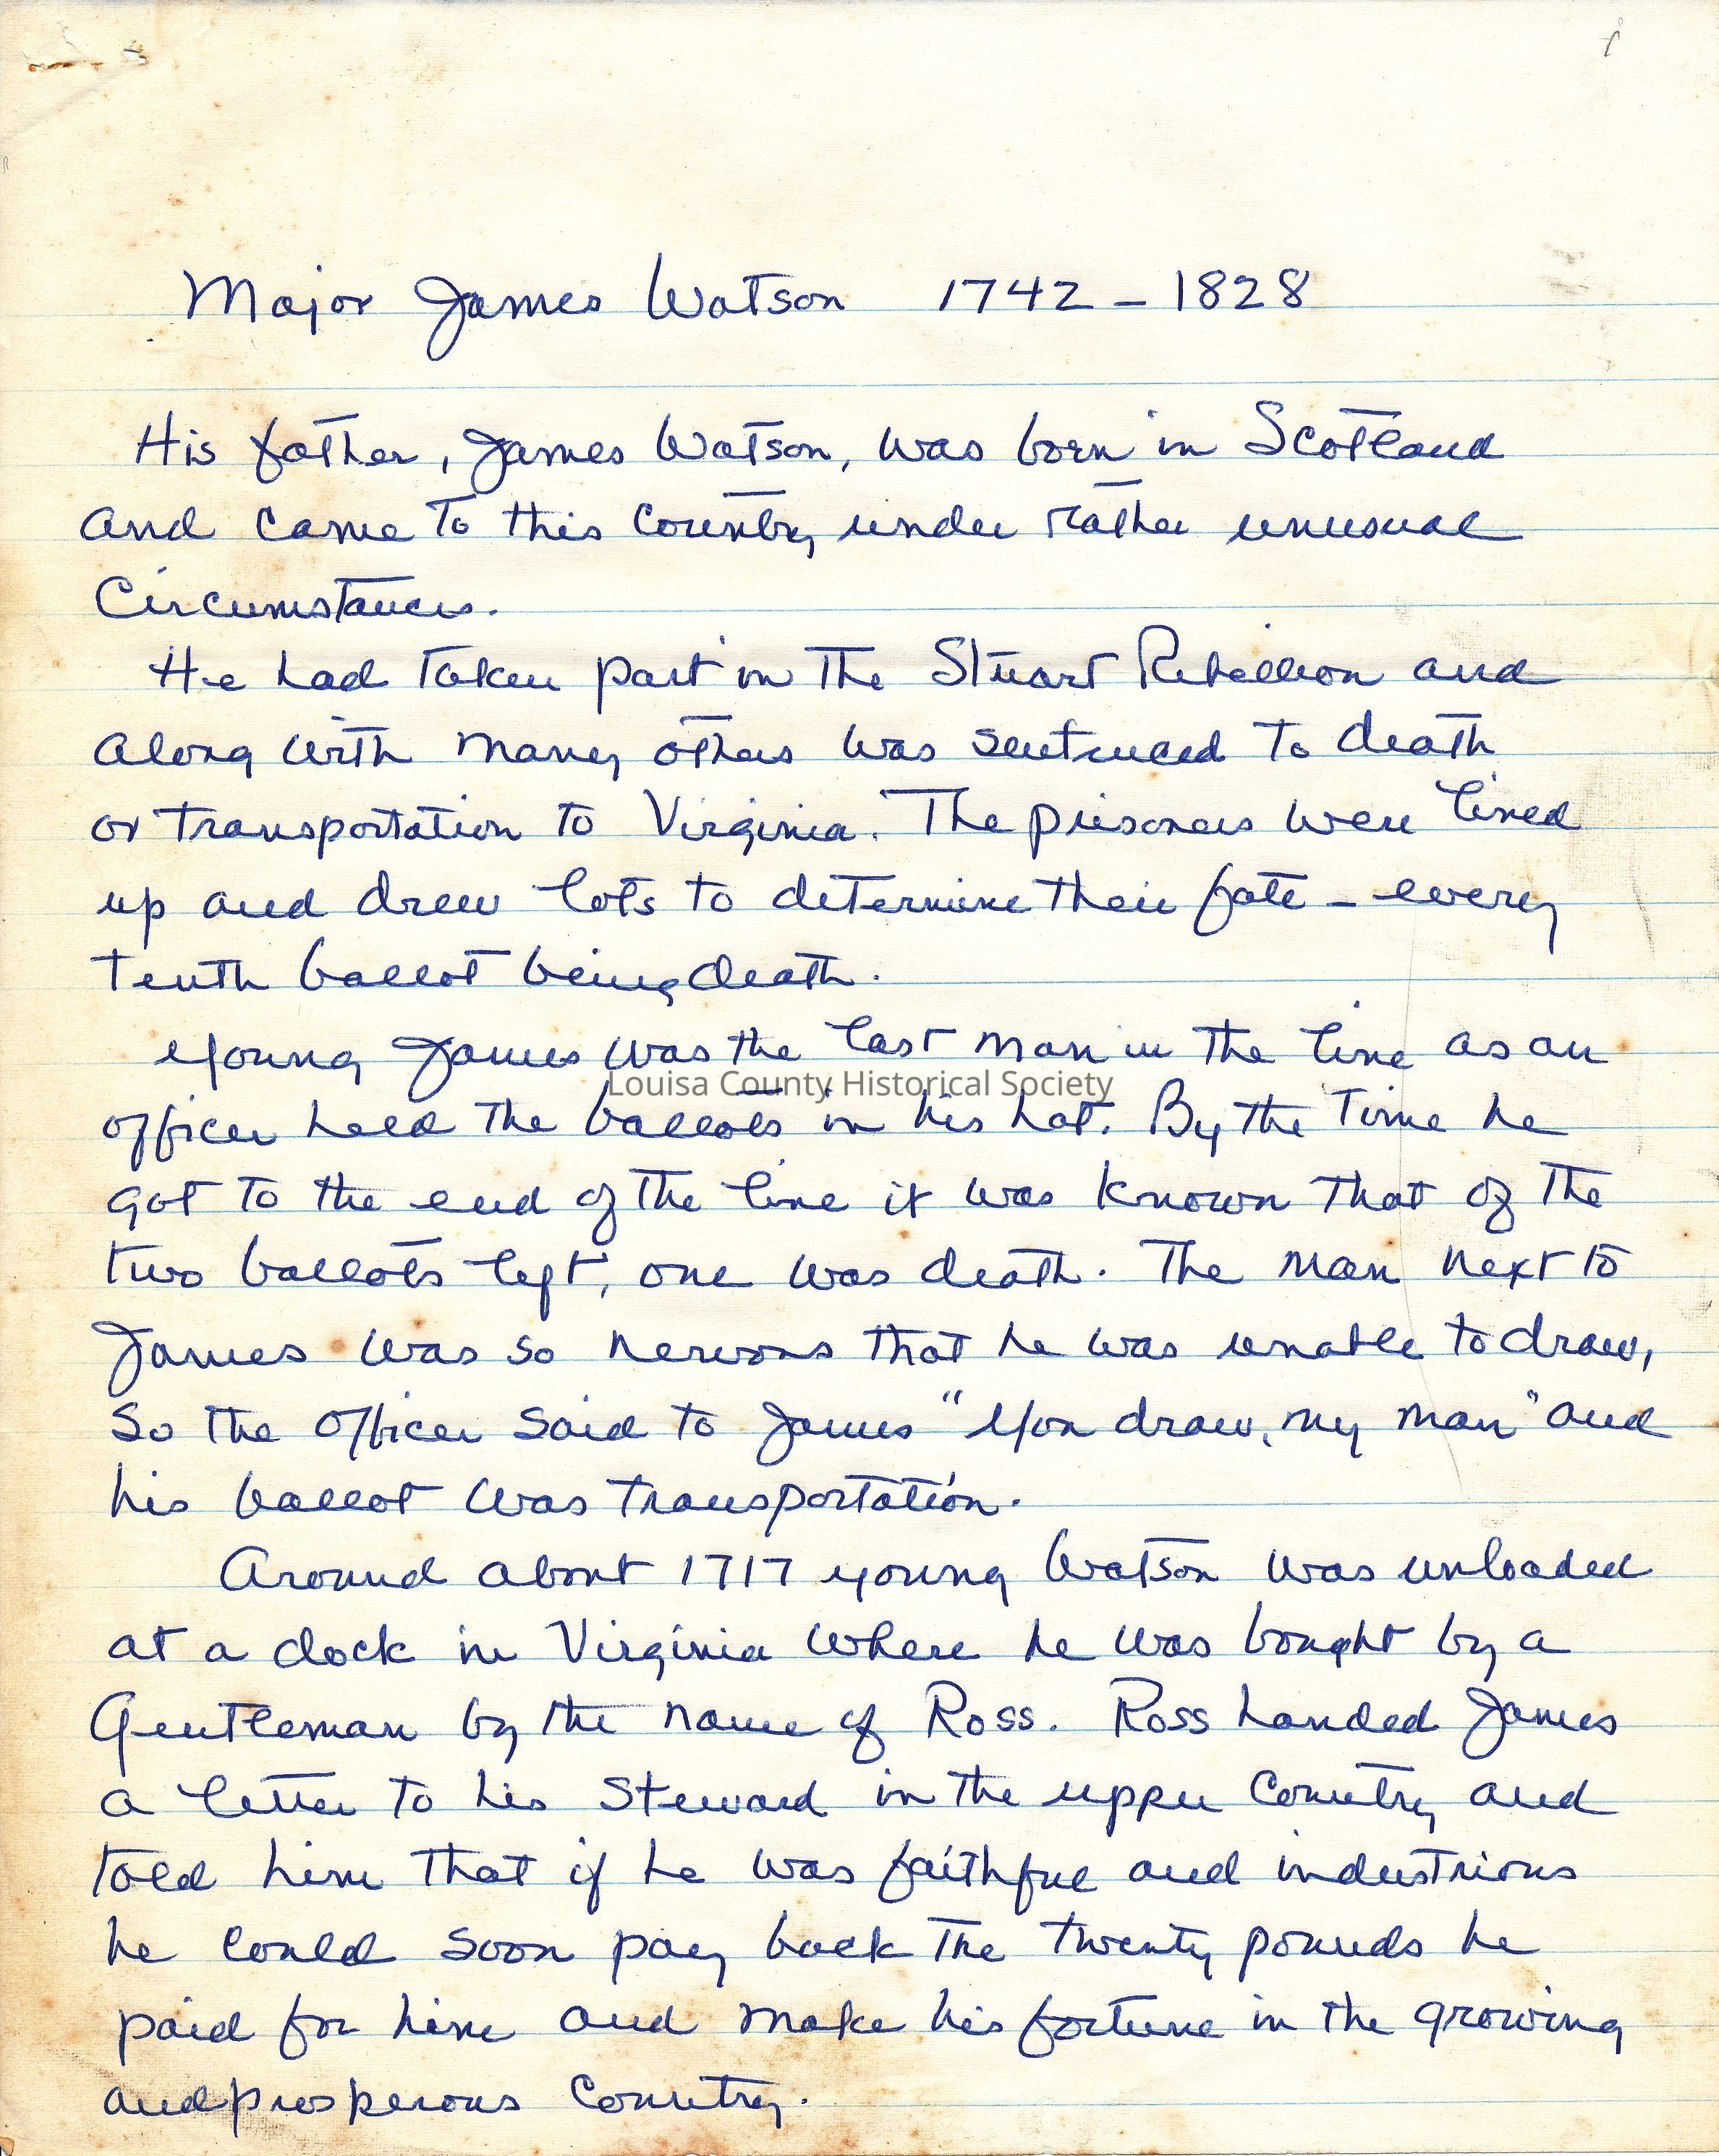 1
Major James Watson 1742 – 1828
His father, James Watson, was born in Scotland
and came to this country under rather unusual
Circumstances.
He had taken part in the Stuart Rebellion and
along with many others was sentenced to death
or transportation to Virginia. The prisoners were lined
up and drew lots to determine their fate – every
tenth ballot being death.
Young James was the last man in the line as an
Louisa County Historical Society
officer held the ballots in his hat. By the time he
got to the end of the line it was known that of the
two ballots left, one was death. The man next to
James was so nervous that he was unable to draw,
So the officer said to James "You draw, my man" and
his ballot was transportation.
Around about 1717 young Watson was unloaded
at a dock in Virginia where he was bought by a
Gentleman by the name of Ross. Ross handed James
a letter to his Steward in the upper Country and
told him that if he was faithful and industrious
he could soon pay back the twenty pounds he
paid for him and make his fortune in the growing
and prosperous Country.